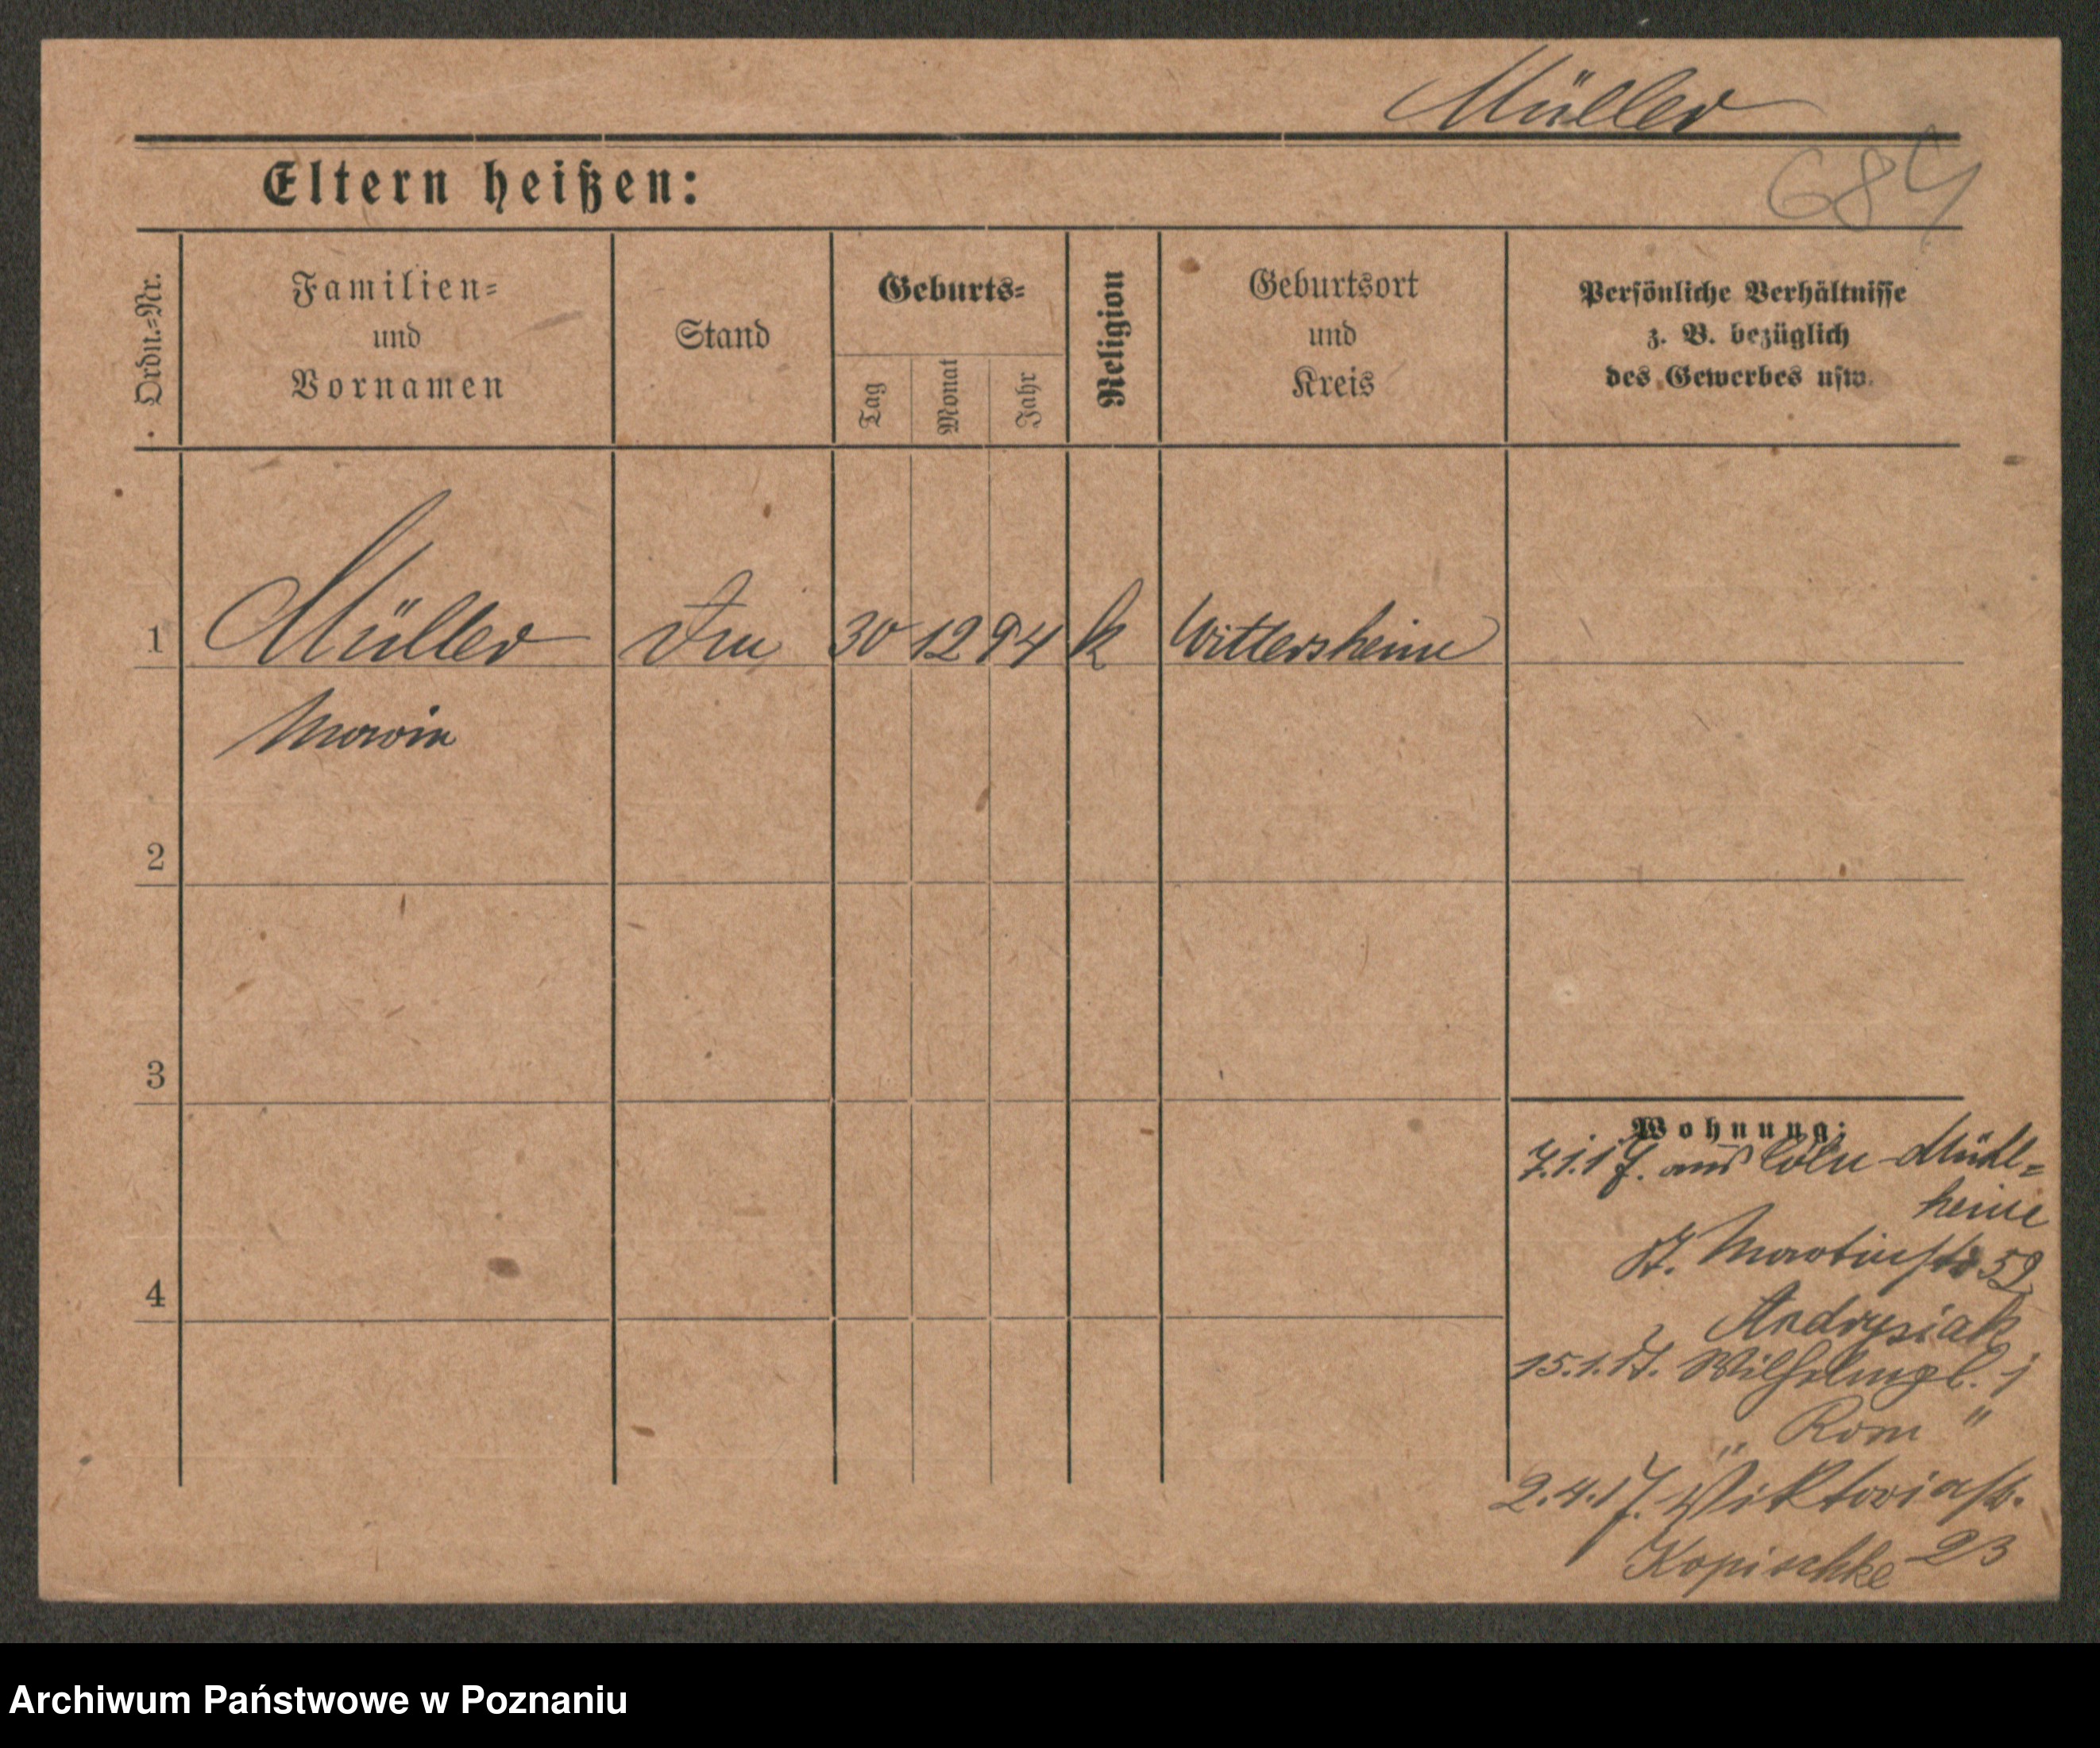 Müller
684
Eltern heißen:
Ordn.-Nr.
Familien-
und
Vornamen
Stand
Geburts-
Tag
Monat
Jahr
Religion
Geburtsort
und
Kreis
Persönliche Verhältnisse
z. B. bezüglich
des Gewerbes usw.
1
Müller
30 12 94 k Wittersheim
2
3
Wohnung:
7.1.17. aus Cöln-Mühl-
heim
St. Martinstr 52
4
Andrysiak
15.1.17. Wilhelmpl. 1
„ Rom "
2.4.17. Viktoriastr.
Kopischke 23
Archiwum Państwowe w Poznaniu